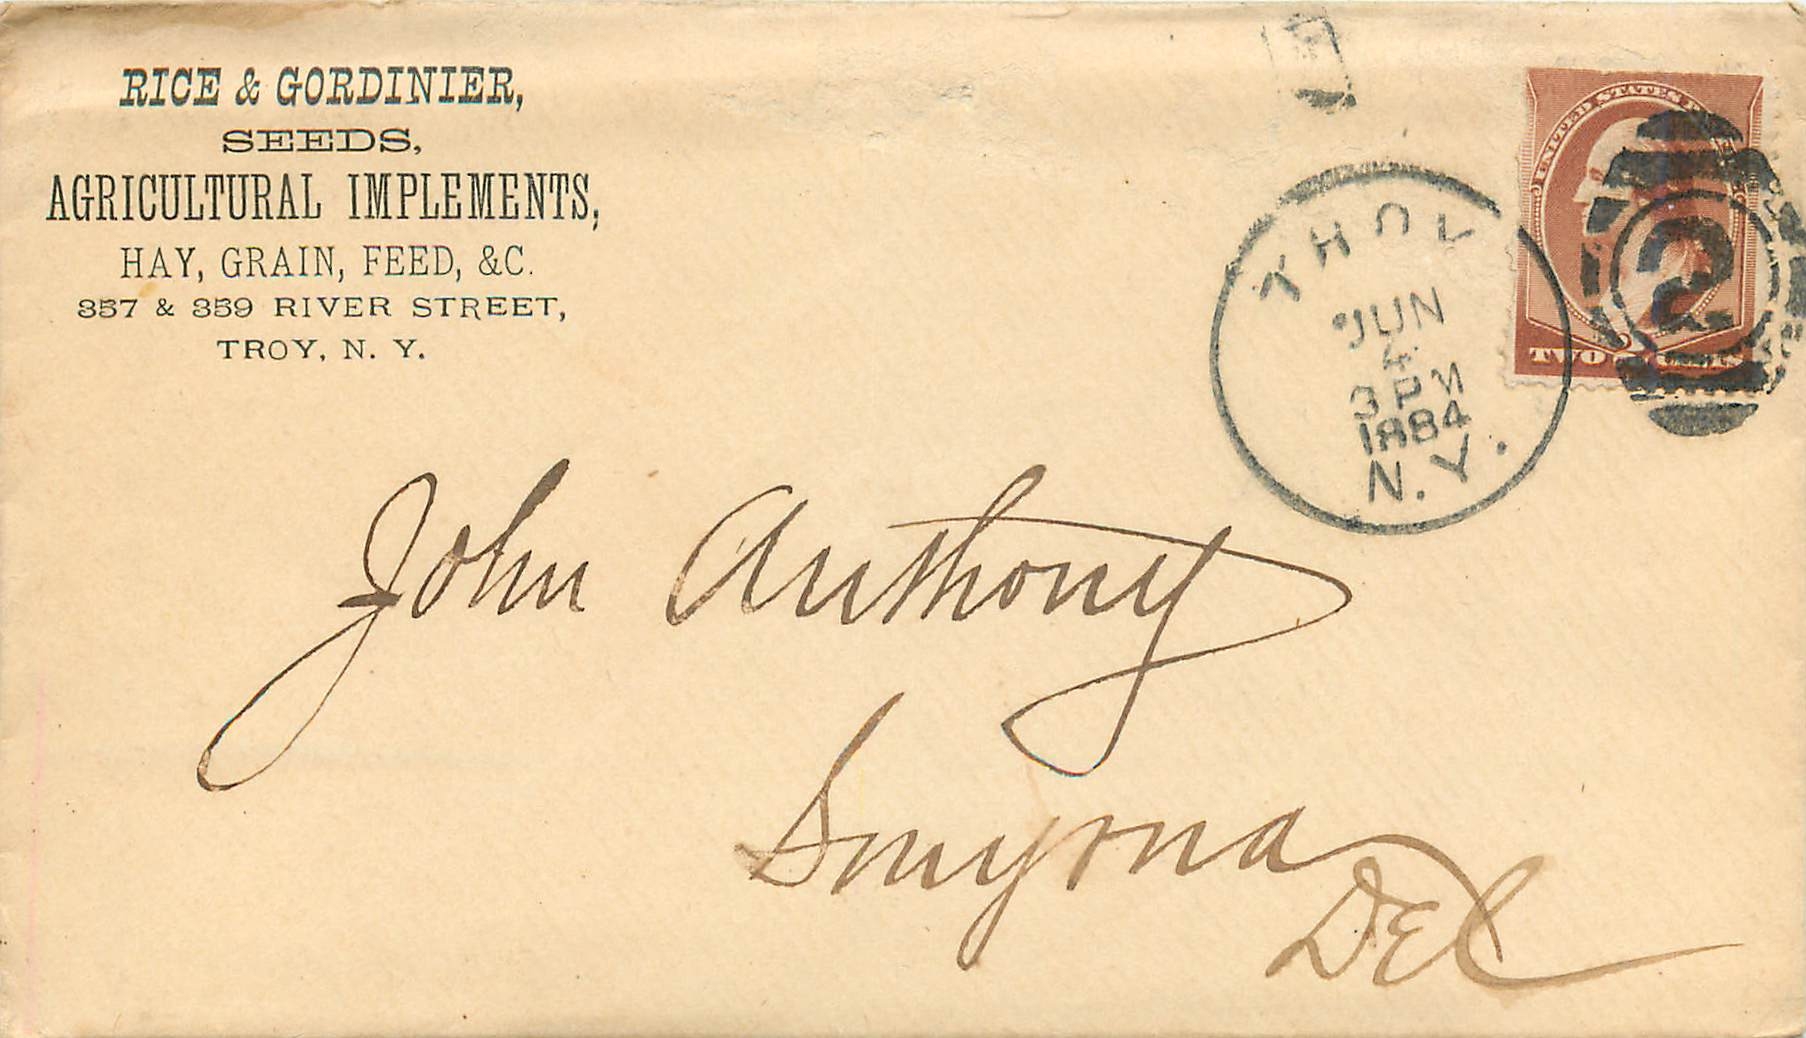 RICE & GORDINIER,
SEEDS,
AGRICULTURAL IMPLEMENTS,
HAY, GRAIN, FEED, &C.
357 & 359 RIVER STREET,
TROY, N. Y.
UNITED STATES
TWO CENTS
2
JUN
4
3 PM
1884
N.Y.
John Anthony
Smyrna
Del